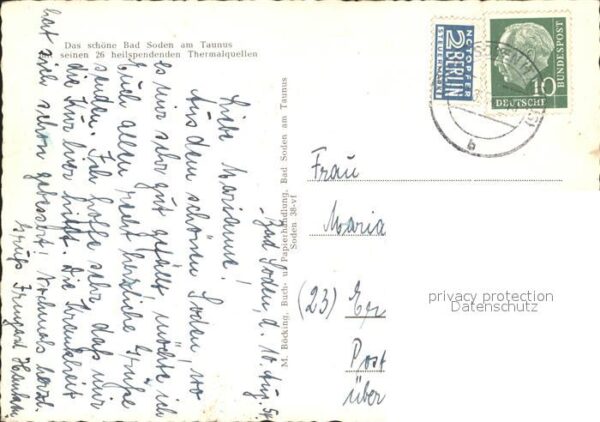 Das schöne Bad Soden am Taunus
seinen 26 heilspendenden Thermalquellen
Bad Soden, d. 10. Aug. 54
Liebe Marianne!
Aus dem schönen Soden, wo
es mir sehr gut gefällt möchte ich
Euch allen recht herzliche Grüße
senden. Ich hoffe sehr daß mir
die Kur hier hilft. Die Krankheit
hat sich schon gebessert! Nochmals herzl.
Grüße Irmgard
M. Böcking, Buch- u. Papierhandlung, Bad Soden am Taunus
Soden 38-vf
NOTOPFER
2 BERLIN
STEUERMARKE
DEUTSCHE
BUNDESPOST
10
b
Frau
Maria
(23) Er
Post
über
privacy protection
Datenschutz